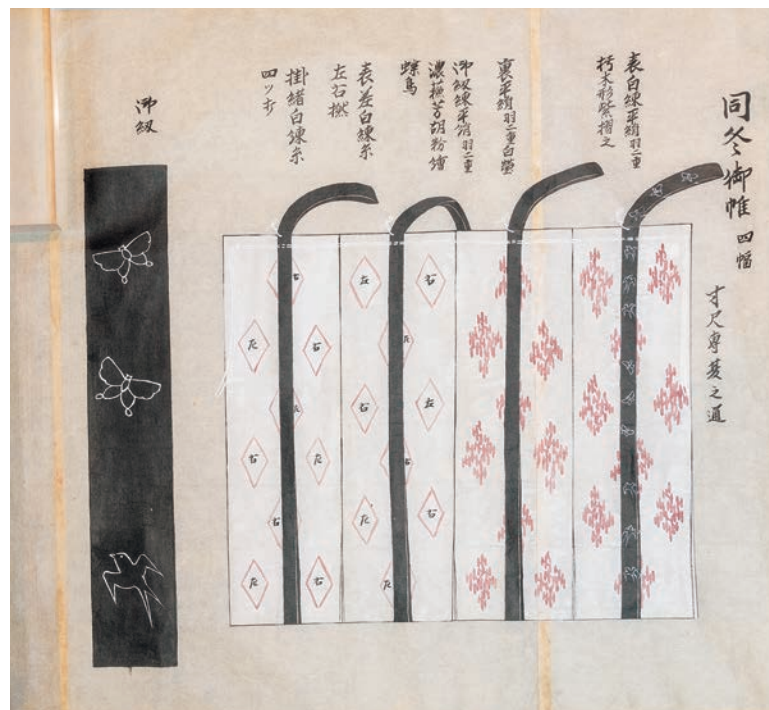 同冬御帷 四幅
寸尺専夏之通
表白練平絹羽二重
朽木形紫摺之
裏平絹羽二重白瑩
御紐練平絹羽二重
濃蘓芳胡粉繪
蝶鳥
表差白練糸
左右撚
掛緒白練糸
四ツ打
御紐
右
左
右
左
右
左
右
左
右
左
右
左
左
右
左
右
左
右
左
右
左
右